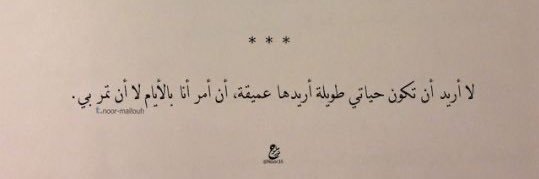 * * *
لا أريد أن تكون حياتي طويلة أريدها عميقة، أن أمر أنا بالأيام لا أن تمر بي.
t.noor-mallouh